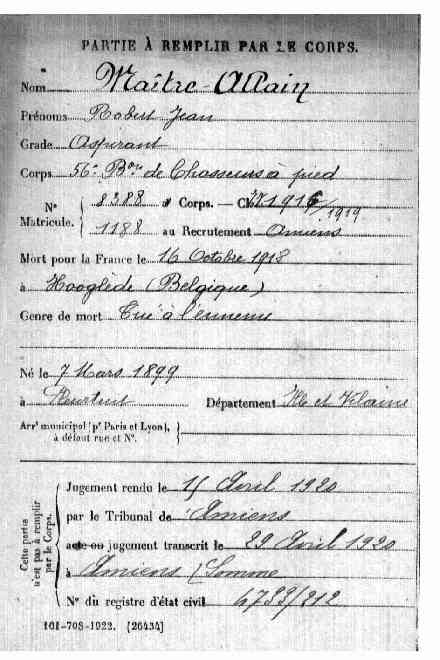 PARTIE À REMPLIR PAR LE CORPS.
Nom Maître-Allain
Prénoms Robert Jean
Grade Aspirant
Corps 56e Bon de Chasseurs à pied
Nº Matricule. { 8388 au Corps. — Cl. 1916/1919
1188 au Recrutement Amiens
Mort pour la France le 16 Octobre 1918
à Hooglède (Belgique)
Genre de mort Tué à l'ennemi
Né le 7 Mars 1899
à Pleurtuit Département Ille et Vilaine
Arrt municipal (pr Paris et Lyon), à défaut rue et Nº. }
Cette partie n'est pas à remplir par le Corps.
Jugement rendu le 15 Avril 1920
par le Tribunal de Amiens
acte ou jugement transcrit le 29 Avril 1920
à Amiens (Somme
Nº du registre d'état civil 4733/212
101-708-1922. [26434]